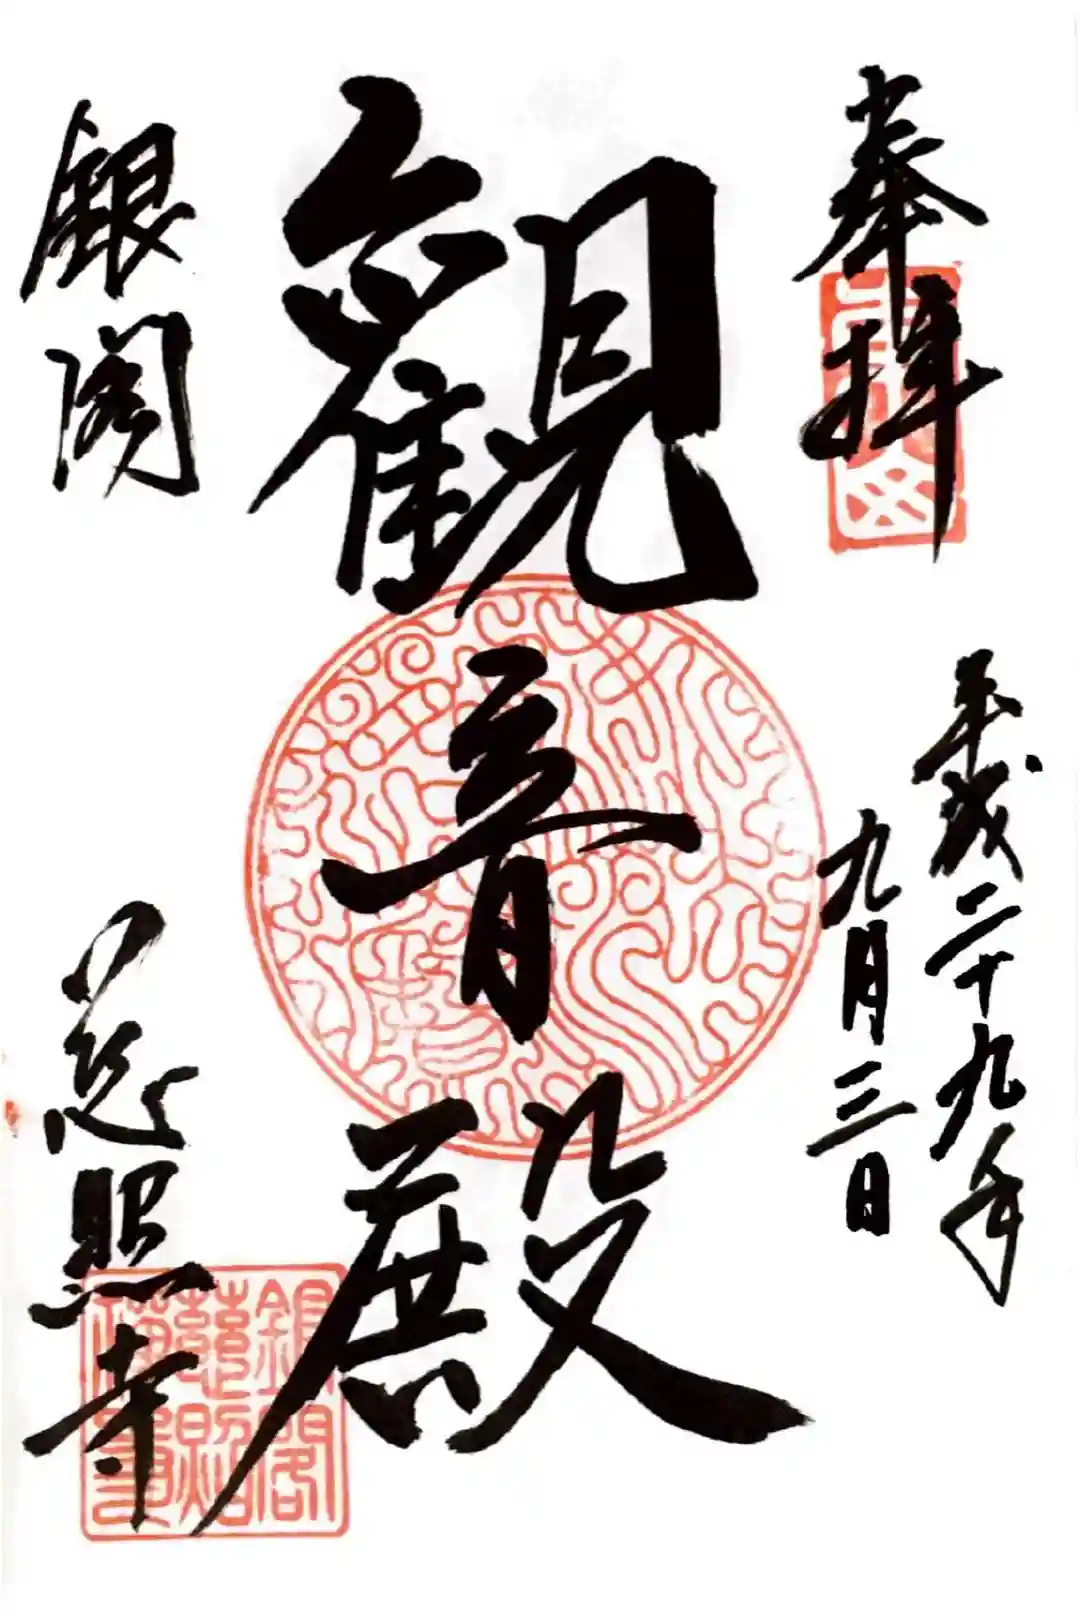 奉拝
平成二十九年
九月三日
觀音殿
銀閣
慈照寺
銀閣
慈照
禅寺